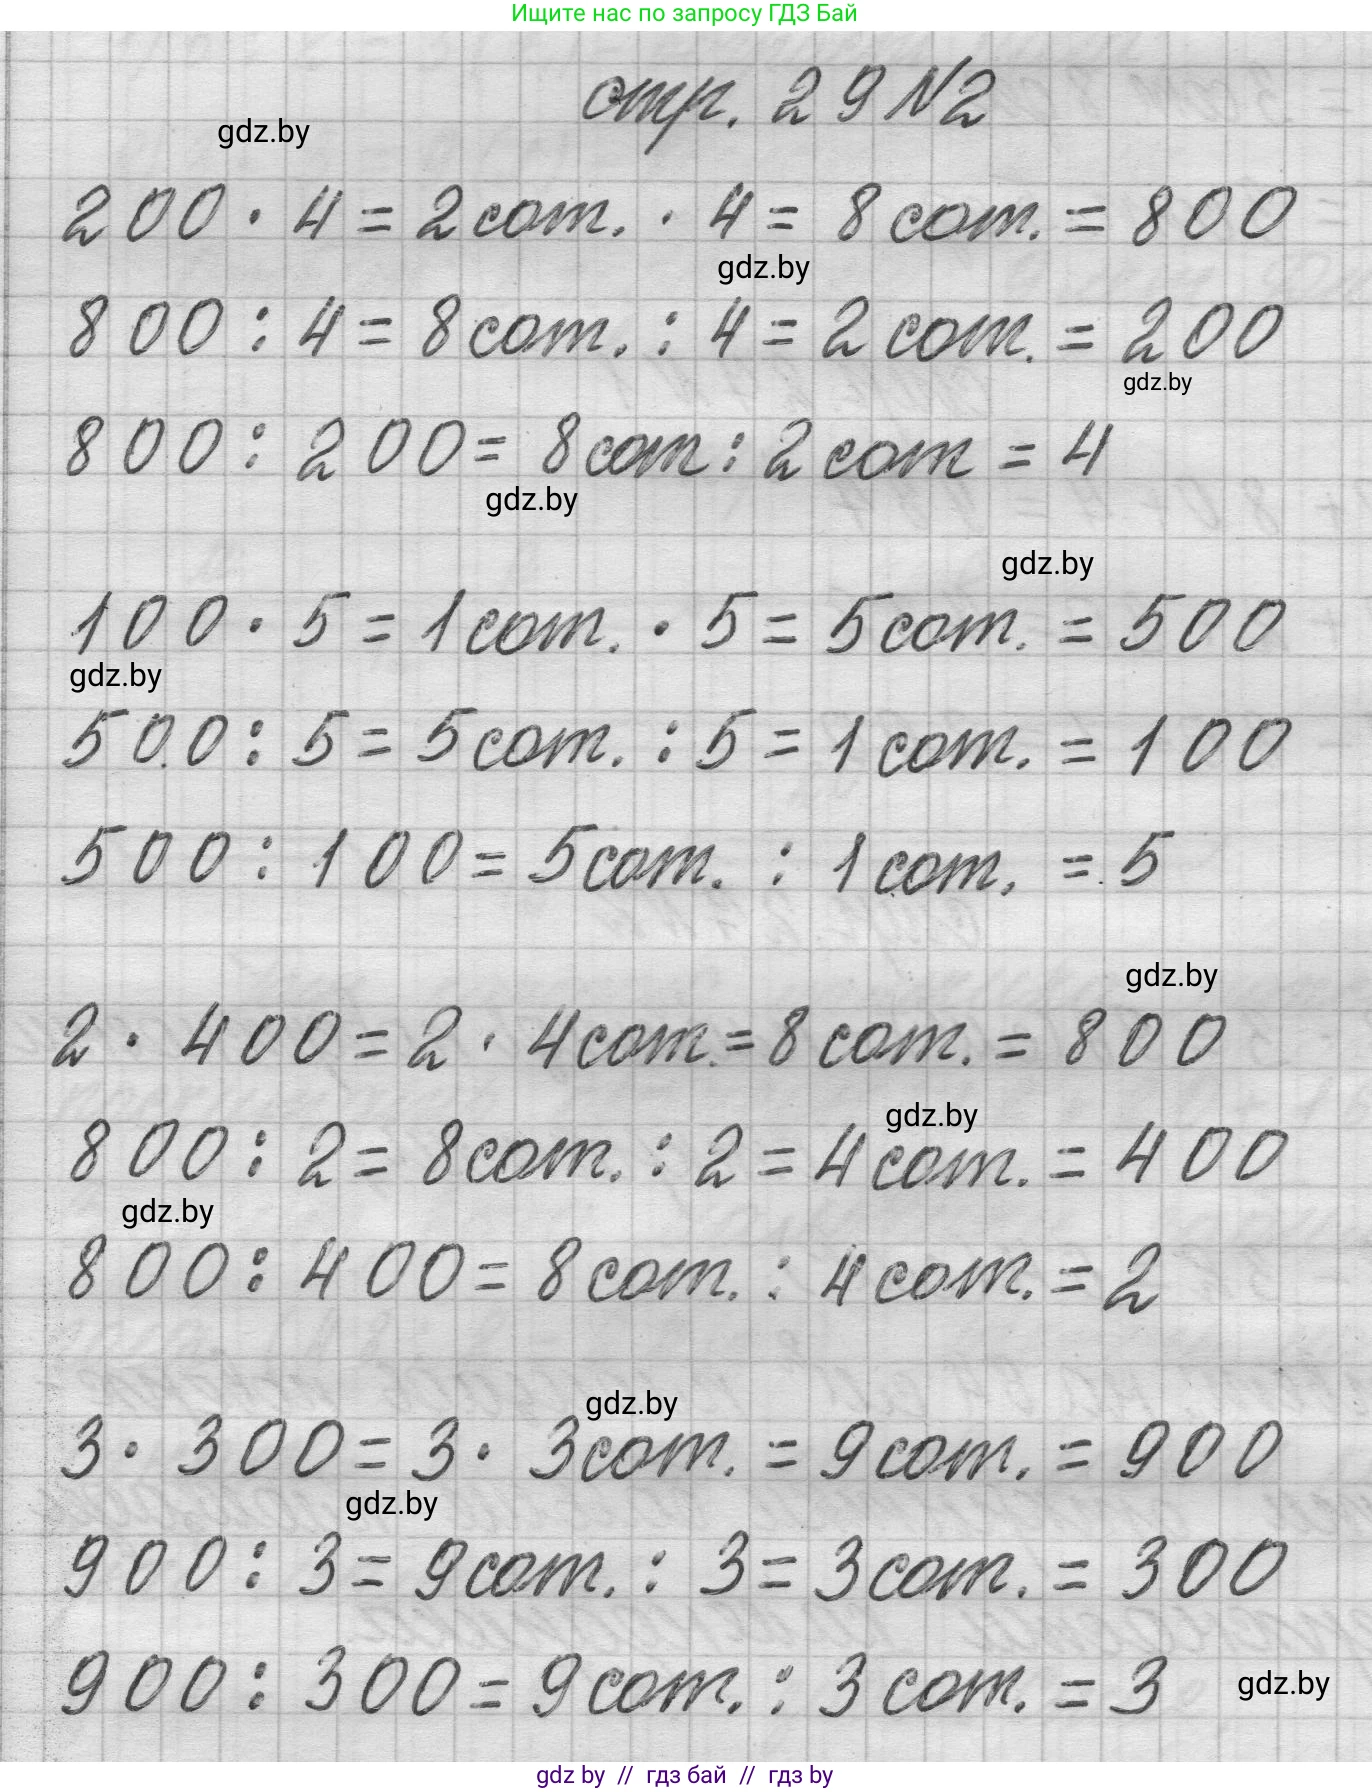 Ищите нас по запросу ГДЗ Бай
стр. 29 №2
gdz.by
200 · 4 = 2 сот. · 4 = 8 сот. = 800
gdz.by
800 : 4 = 8 сот. : 4 = 2 сот. = 200
gdz.by
800 : 200 = 8 сот : 2 сот = 4
gdz.by
gdz.by
100 · 5 = 1 сот. · 5 = 5 сот. = 500
gdz.by
500 : 5 = 5 сот. : 5 = 1 сот. = 100
500 : 100 = 5 сот. : 1 сот. = 5
gdz.by
2 · 400 = 2 · 4 сот. = 8 сот. = 800
gdz.by
800 : 2 = 8 сот. : 2 = 4 сот. = 400
gdz.by
800 : 400 = 8 сот. : 4 сот. = 2
gdz.by
3 · 300 = 3 · 3 сот. = 9 сот. = 900
gdz.by
900 : 3 = 9 сот. : 3 = 3 сот. = 300
900 : 300 = 9 сот. : 3 сот. = 3
gdz.by
gdz by // гдз бай // гдз by